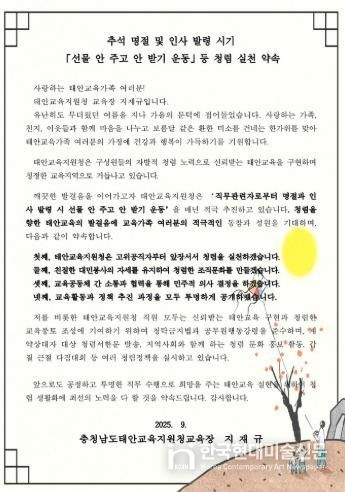 추석 명절 및 인사 발령 시기
「선물 안 주고 안 받기 운동」 등 청렴 실천 약속
사랑하는 태안교육가족 여러분!
태안교육지원청 교육장 지재규입니다.
유난히도 무더웠던 여름을 지나 가을의 문턱에 접어들었습니다. 사랑하는 가족,
친지, 이웃들과 함께 마음을 나누고 보름달 같은 환한 미소를 건네는 한가위를 맞아
태안교육가족 여러분의 가정에 건강과 행복이 가득하기를 기원합니다.
태안교육지원청은 구성원들의 자발적 청렴 노력으로 신뢰받는 태안교육을 구현하며
청정한 교육지역으로 거듭나고 있습니다.
깨끗한 발걸음을 이어가고자 태안교육지원청은 '직무관련자로부터 명절과 인
사 발령 시 선물 안 주고 안 받기 운동'을 매년 적극 추진하고 있습니다. 청렴을
향한 태안교육의 발걸음에 교육가족 여러분의 적극적인 동참과 성원을 기대하며,
다음과 같이 약속합니다.
첫째, 태안교육지원청은 고위공직자부터 앞장서서 청렴을 실천하겠습니다.
둘째, 친절한 대민봉사의 자세를 유지하여 청렴한 조직문화를 만들겠습니다.
셋째, 교육공동체 간 소통과 협력을 통해 민주적 의사 결정을 하겠습니다.
넷째, 교육활동과 정책 추진 과정을 모두 투명하게 공개하겠습니다.
저를 비롯한 태안교육지원청 직원 모두는 신뢰받는 태안교육 구현과 청렴한
교육풍토 조성에 기여하기 위하여 청탁금지법과 공무원행동강령을 준수하며, 계
약상대자 대상 청렴서한문 발송, 지역사회와 함께 하는 청렴 문화 홍보 활동, 갑
질 근절 다짐대회 등 여러 청렴정책을 실시하고 있습니다.
앞으로도 공정하고 투명한 직무 수행으로 희망을 주는 태안교육 실현을 위하여 청
렴 생활화에 최선의 노력을 다 할 것을 약속드립니다. 감사합니다.
2025. 9.
충청남도태안교육지원청교육장 지 재 규
한국현대미술신문
Korea Contemporary Art Newspaper